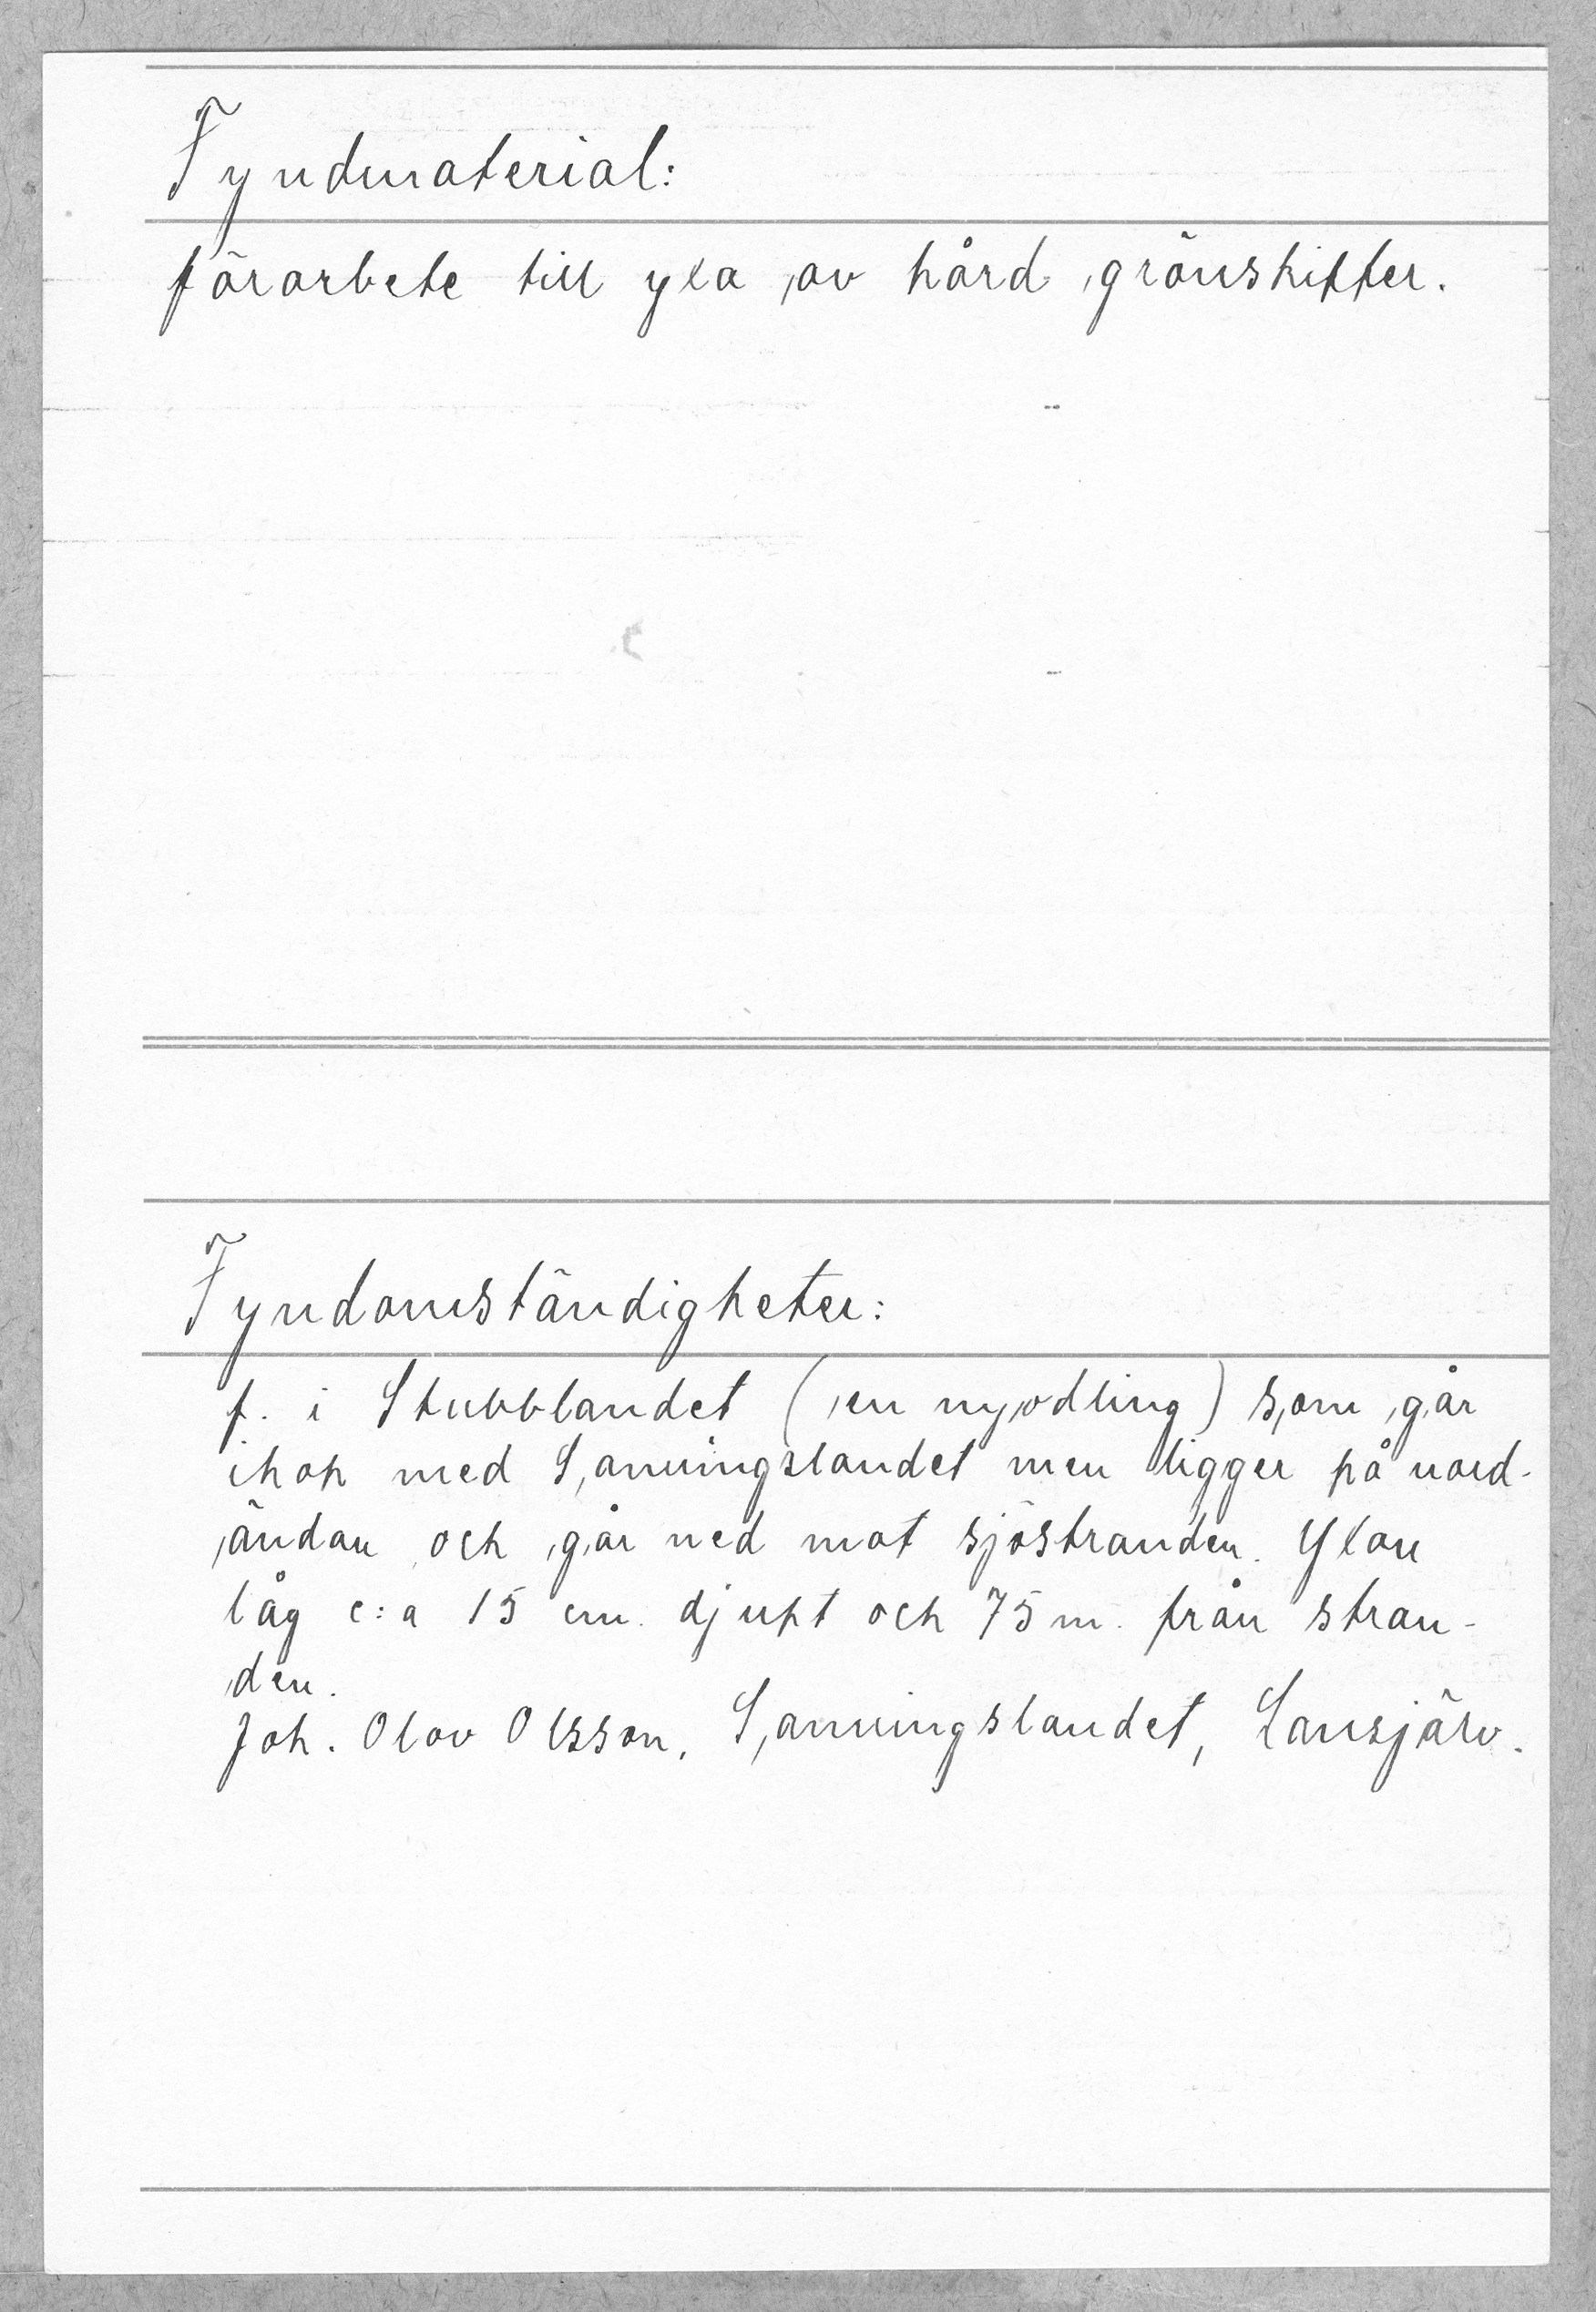 Fyndmaterial:
förarbete till yxa av hård grönskiffer.
Fyndomständigheter:
f. i Stubblandet (en nyodling) som går
ihop med Sanningslandet men ligger på nord-
ändan och går ned mot sjöstranden. Yxan
låg c:a 15 cm. djupt och 75 m. från stran-
den.
Joh. Olov Olsson, Sanningslandet, Lansjärv.